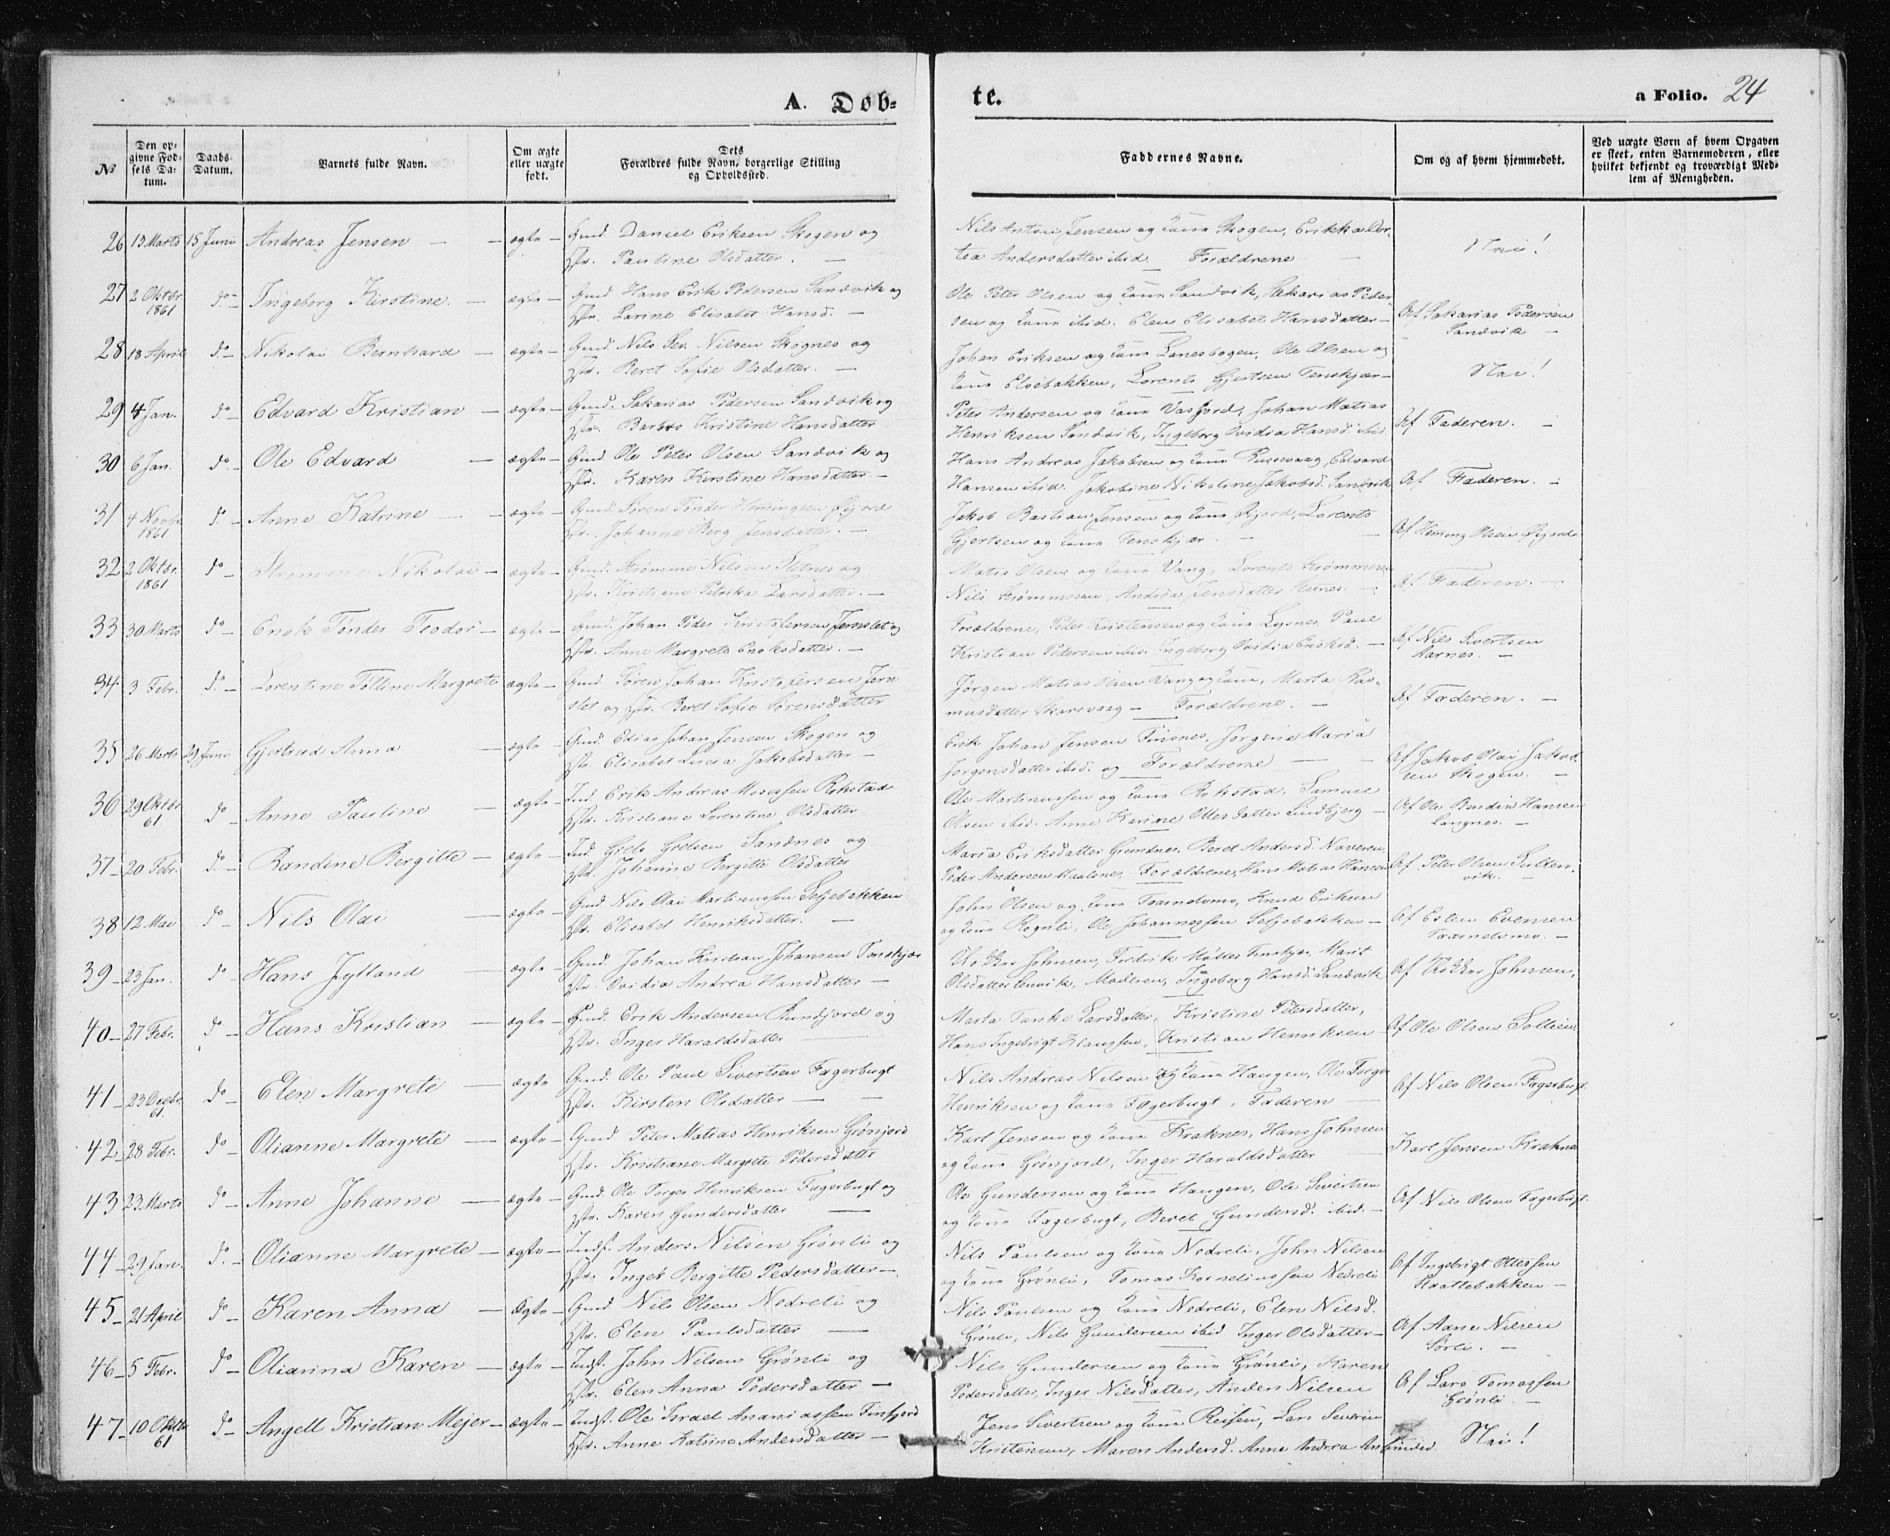 A. Døb-
te.
a Folio. 24
№
Den op-
givne Fød-
sels Da-
tum.
Daabs-
Datum.
Barnets fulde Navn.
Om ægte
eller uægte
født.
Dets
Forældres fulde Navn, borgerlige Stilling
og Opholdssted.
Faddernes Navne.
Om og af hvem hjemmedøbt.
Ved uægte Børn af hvem Opgaven
er skeet, enten Barnemoderen, eller
hvilket bekjendt og troværdigt Med-
lem af Menigheden.
26 13 Marts 15 Juni Andreas Jensen — ægte — Gmd. Daniel Eriksen Skogen og
Hstr. Pauline Olsdatter. —
Nils Anton Jensen og Kone Skogen, Erikka Dor-
tea Andersdatter ibid. Forældrene —
Nei!
27 2 Oktbr. 1861 do — Ingeborg Kirstine. — ægte — Gmd Hans Erik Pedersen Sandvik og
Hstr. Larine Elisabet Hansd. —
Ole Peter Olsen og Kone Sandvik, Sakarias Peder-
sen og Kone ibid. Elen Elisabet Hansdatter —
Af Sakarias Pedersen
Sandvik —
28 18 April do — Nikolai Bernhard — ægte — Gmd. Nils Sev. Nilsen Skognes og
Hstr. Beret Sofie Olsdatter. —
Johan Eriksen og Kone Lanesbogen, Ole Olsen og
Kone Elvebakken, Lorents Gjertsen Tenskjær —
Nei!
29 4 Jan. do — Edvard Kristian — ægte — Gmd. Sakarias Pedersen Sandvik og
Hstr. Barbro Kristine Hansdatter
Peter Andersen og Kone Vasjord, Johan Matias
Henriksen Sandvik, Ingeborg Ovidia Hansd. ibid.
Af Faderen. —
30 6 Jan. do — Ole Edvard — ægte — Gmd Ole Peter Olsen Sandvik og
Hstr. Karen Kirstine Hansdatter —
Hans Andreas Jakobsen og Kone Russevaag, Edvard
Hansen ibid. Jakobine Nikoline Jakobsd. Sandvik
Af Faderen. —
31 4 Novbr. 1861 do — Anne Katrine — ægte — Gmd. Søren Tinder Hemingsen Øyjord
Hstr. Johanne Berg Jensdatter.
Jakob Bastian Jensen og Kone Øyjord, Lorents
Gjertsen og Kone Tenskjær —
Af Heming Olsen Øyjord
32 2 Oktbr. 1861 do — Nikolai — ægte — Gmd. Strømme Nilsen Sætnes og
Hstr. Kristiane Petrika Larsdatter. —
Matis Olsen og Kone Vang, Lorents Strømmesen
Nils Strømmesen, Andrea Jensdatter —
Af Faderen. —
33 30 Marts do — Enok Tønder Teodor — ægte — Gmd. Johan Peder Kristofersen Jernslet og
Hstr. Anne Margrete Enoksdatter. —
Forældrene, Peder Kristensen og Kone Lysnes, Paul
Kristian Pedersen ibid. Ingeborg Ovidia Enoksd. —
Af Nils Sivertsen
—
34 3 Febr. do — Lorentine Margrete ægte — Gmd Søren Johan Kristofersen Jern
slet og Hstr. Beret Sofie Sørensdatter
Jørgen Matias Olsen Vang og Kone, Marta Ras-
musdatter Skarsvaag — Forældrene. —
Af Faderen. —
35 26 Marts 29 Juni Gjertrud Anna — ægte — Gmd. Edias Johan Jensen Skogen og
Hstr. Elisabet Lucia Jakobsdatter —
Erik Johan Jensen Finsnes, Jørgine Maria
Jørgensdatter ibid. og Forældrene —
Af Jakob Olai Jakob-
sen Skogen. —
36 29 Oktbr. 61 do — Anne Pauline — ægte — Ind Erik Andreas Mosessen Rokstad
Hstr. Kristiane Lorentine Olsdatter
Ole Martinussen og Kone Rokstad, Samuel
Olsen ibid. Anne Karine Ottesdatter Lindbjerg —
Af Ole Bendix Hansen
Langnes. —
37 — 20 Febr. do — Randine Bergitte — ægte — Ind Grels Grelsen Sandnes og
Hstr. Johanne Bergitte Olsdatter
Maria Eriksdatter Grundnes, Beret Andersd. Naveren,
Peder Andersen Maalsnes, Forældrene, Hans Matias Hansen
Af Peter Olsen Sulten-
vik. —
38 12 Mai do — Nils Olai — ægte — Gmd Nils Olai Martinussen Seljebakken
Hstr. Elisabet Henriksdatter. —
John Olsen og Kone Taarneboms, Knud Eriksen
og Kone Rognli, Ole Johannessen Seljebakken —
Af Esten Evensen
—
39 — 23 Jan. do — Hans Jylland — ægte — Gmd Johan Kristian Johansen Tenskjær
Hstr. Ovidia Andrea Hansdatter —
Johnsen, Fredrik Møller Tenskjær, Marit
Olsdatter Lenvik, Moderen, Ingeborg Hansd. Sandvik
Af Johnsen,
40 — 27 Febr. do — Hans Kristian — ægte — Gmd. Erik Andersen Rundfjord og
Hstr. Inger Haraldsdatter —
Marta Tanke Larsdatter, Kristine Petersdatter,
Hans Ingebrigt Klaussen, Kristian Henriksen —
Af Ole Olsen Sollien
41 — 23 Decbr. 61 do — Elen Margrete — ægte — Gmd. Ole Paul Sivertsen Fagerbugt
Hstr. Kirsten Olsdatter —
Nils Andreas Nilsen og Kone Haugen, Ole Torger
Henriksen og Kone Fagerbugt, Faderen —
Af Nils Olsen Fagerbugt
42 — 28 Febr. do — Olianne Margrete — ægte — Gmd. Peter Matias Henriksen Grønjord
Hstr. Kristiane Margrete Pedersdatter
Karl Jensen og Kone Kraknes, Hans Johnsen
og Kone Grønjord, Inger Haraldsdatter —
Karl Jensen Kraknes
43 23 Marts do — Anne Johanne — ægte — Gmd. Ole Torger Henriksen Fagerbugt og
Hstr. Karen Gundersdatter —
Ole Gundersen og Kone Haugen, Ole Sivertsen
og Kone Fagerbugt, Beret Gundersd. ibid. —
Af Nils Olsen Fagerbugt.
44 — 29 Jan. do — Olianne Margrete — ægte — Indf. Anders Nilsen Grønli og
Hstr. Inger Bergitte Pedersdatter —
Nils Paulsen og Kone Nedreli, John Nilsen
og Kone Grønli, Tomas Korneliussen Nedreli
Af Ingebrigt Ottessen
Skattebakken —
45 — 21 April do — Karen Anna — ægte — Gmd Nils Olsen Nedreli og
Hstr. Elen Paulsdatter —
Nils Paulsen og Kone Nedreli, Elen Nilsd.
Grønli, Nils Gundersen ibid Inger Olsdatter —
Af Aane Nilsen
Sørli. —
46 — 5 Febr. do — Olianna Karen — ægte — Indf. John Nilsen Grønli og
Hstr. Elen Anna Pedersdatter —
Nils Gundersen og Kone Grønli, Karen
Pedersdatter, Inger Nilsdatter, Anders Nilsen
Af Lars Tomassen
Grønli. —
47 — 10 Oktbr. 61 do — Angell Kristian Mejer — ægte — Indf. Ole Israel Ananiassen Finfjord
Hstr. Anne Katrine Andersdatter —
Jens Sivertsen og Kone Reisen, Lars Severin
Kristensen, Maren Andersd. Anne Andrea
Nei!